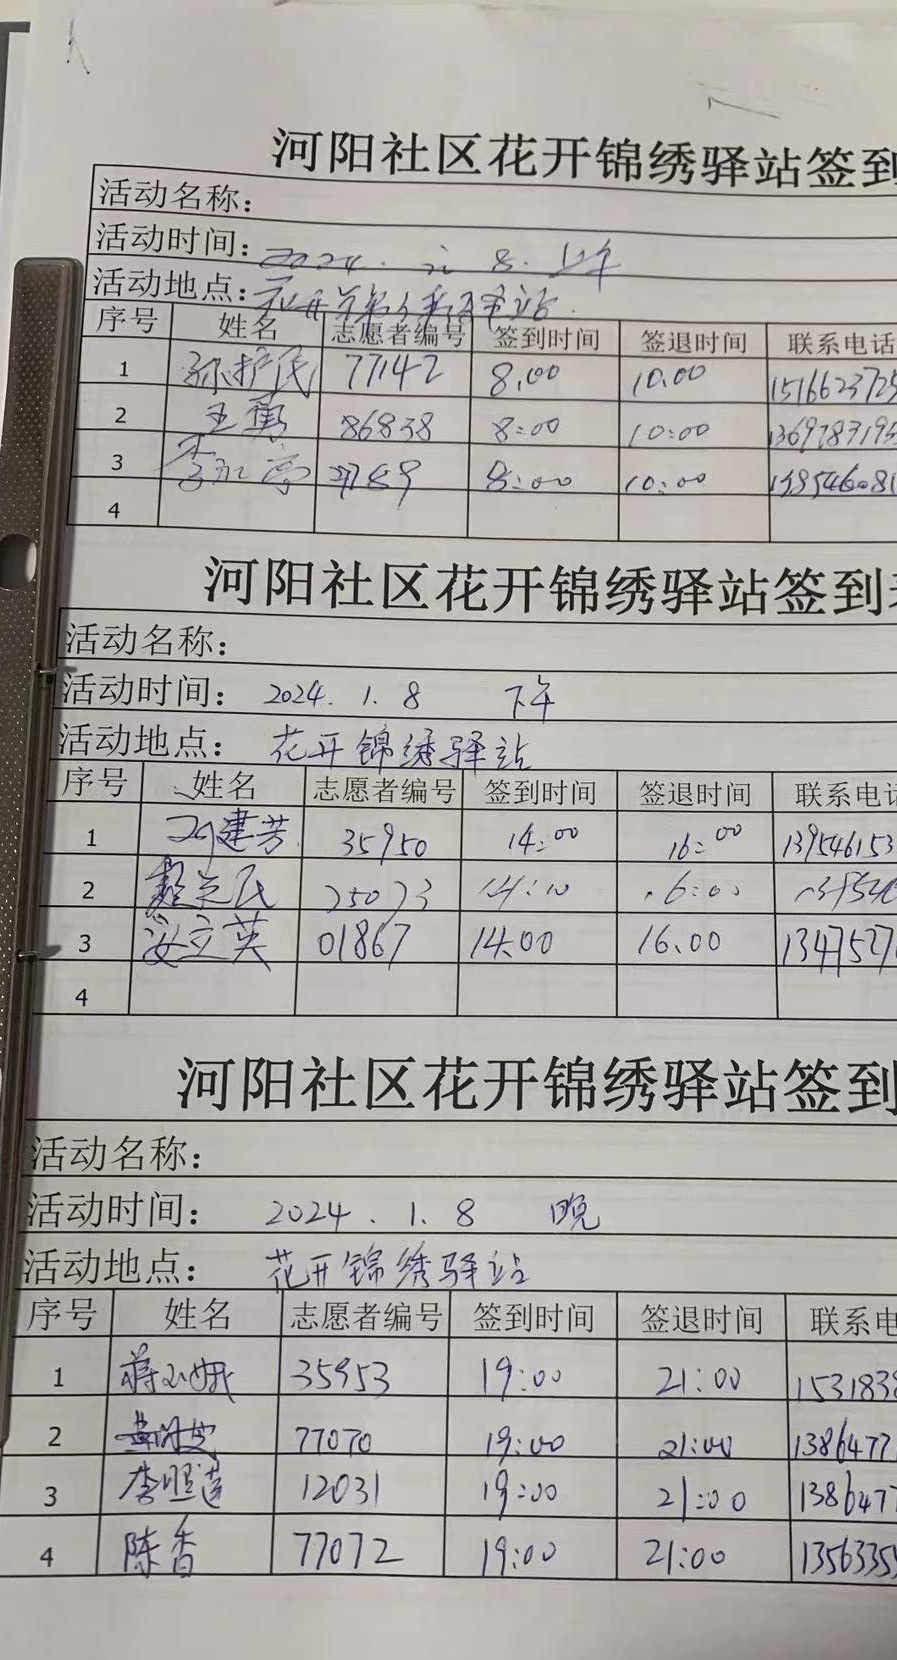 河阳社区花开锦绣驿站签到
活动名称：
活动时间：2024. 8. 上午
活动地点：花开
序号 姓名 志愿者编号 签到时间 签退时间 联系电话
1 护民 77142 8.00 10.00 1516623725
2 王勇 86838 8:00 10:00 1369783195
3 李 8:00 10:00
4
河阳社区花开锦绣驿站签到
活动名称：
活动时间：2024. 1. 8 下午
活动地点：花开锦绣驿站
序号 姓名 志愿者编号 签到时间 签退时间 联系电话
1 刘建芳 35950 14:00 16:00 139546153
2 民
3 姜立英 01867 14.00 16.00 1347527
4
河阳社区花开锦绣驿站签到
活动名称：
活动时间：2024. 1. 8 晚
活动地点：花开锦绣驿站
序号 姓名 志愿者编号 签到时间 签退时间 联系电
1 蒋小娥 35953 19:00 21:00 153183
2 77070 19:00 21:00 1386477
3 李照莲 12031 19:00 21:00 1386477
4 陈香 77072 19:00 21:00 1356335